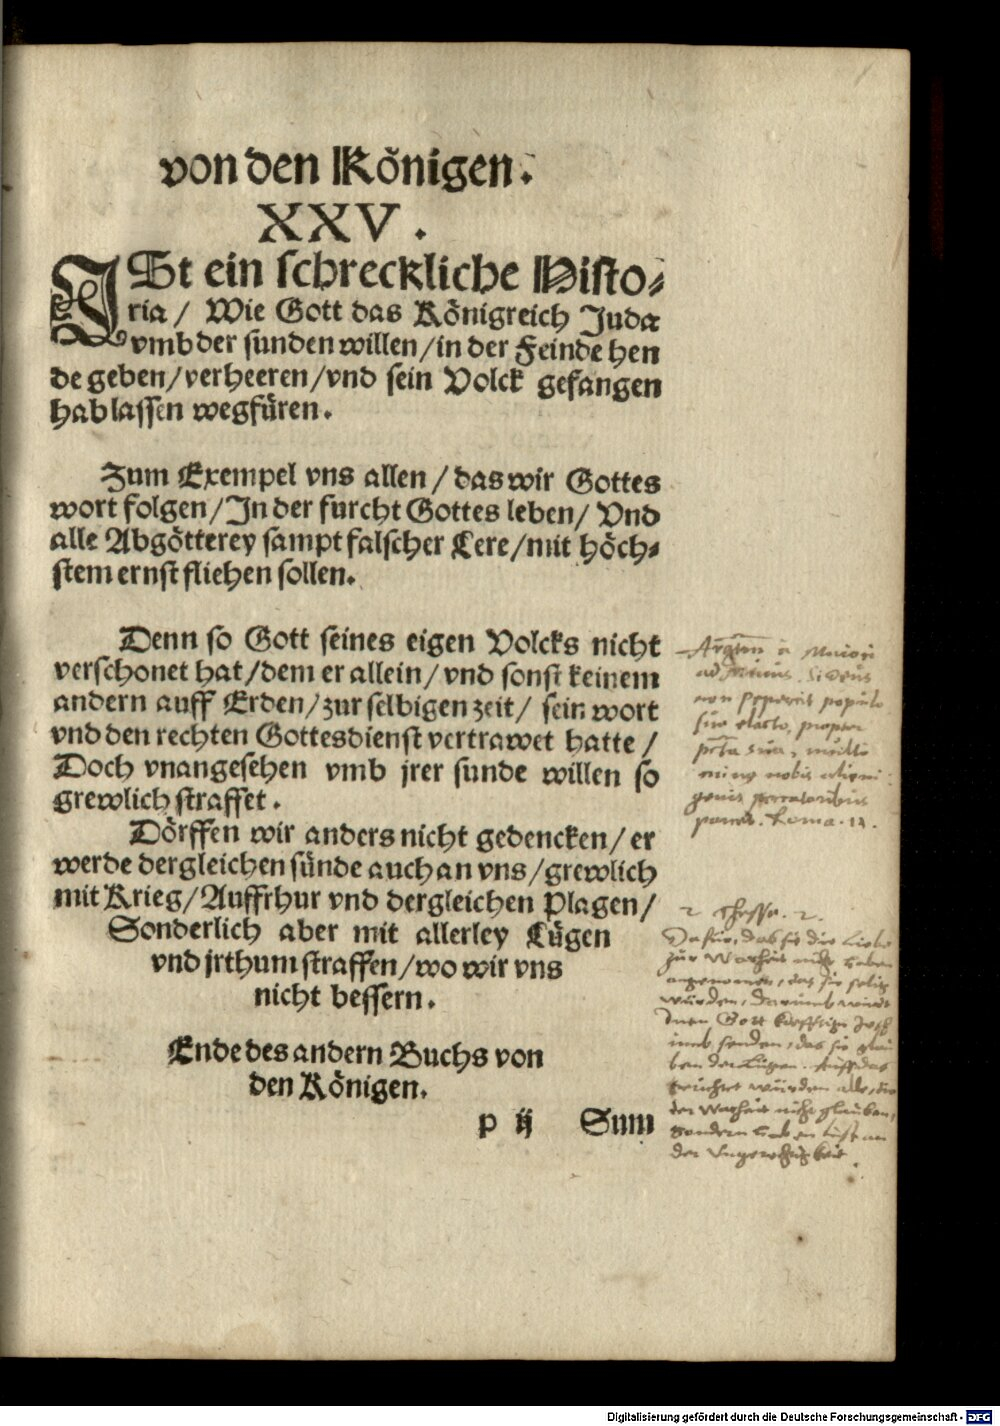 von den Königen.
XXV.
ISt ein schreckliche Histo⸗
ria / Wie Gott das Königreich Juda
vmb der sunden willen / in der Feinde hen
de geben / verheeren / vnd sein Volck gefangen
hab lassen wegfüren.
Zum Exempel vns allen / das wir Gottes
wort folgen / In der furcht Gottes leben / Vnd
alle Abgötterey sampt falscher Lere / mit höch⸗
stem ernst fliehen sollen.
Denn so Gott seines eigen Volcks nicht
verschonet hat / dem er allein / vnd sonst keinem
andern auff Erden / zur selbigen zeit / sein wort
vnd den rechten Gottesdienst vertrawet hatte /
Doch vnangesehen vmb jrer sunde willen so
grewlich straffet.
Dörffen wir anders nicht gedencken / er
werde dergleichen sünde auch an vns / grewlich
mit Krieg / Auffrhur vnd dergleichen Plagen /
Sonderlich aber mit allerley Lügen
vnd jrthum straffen / wo wir vns
nicht bessern.
Ende des andern Buchs von
den Königen.
p ij Sum
à Maiori
ad minus. Si Deus
non pepercit populo
suo electo, propter
pctā sua, multo
minus nobis alieni
genis peccatoribus
parcet. Roma. 11.
2 Thessa. 2.
Dafür, das sie die Liebe
zur Warheit nicht haben
angenomen, das sie selig
würden, Darumb wird
Inen Gott krefftige Jrth
umb senden, das sie glau
ben der Lügen. Auff das
gerichtet würden alle, die
der Warheit nicht glauben,
sondern haben lust an
der Ungerechtigkeit.
Digitalisierung gefördert durch die Deutsche Forschungsgemeinschaft - DFG